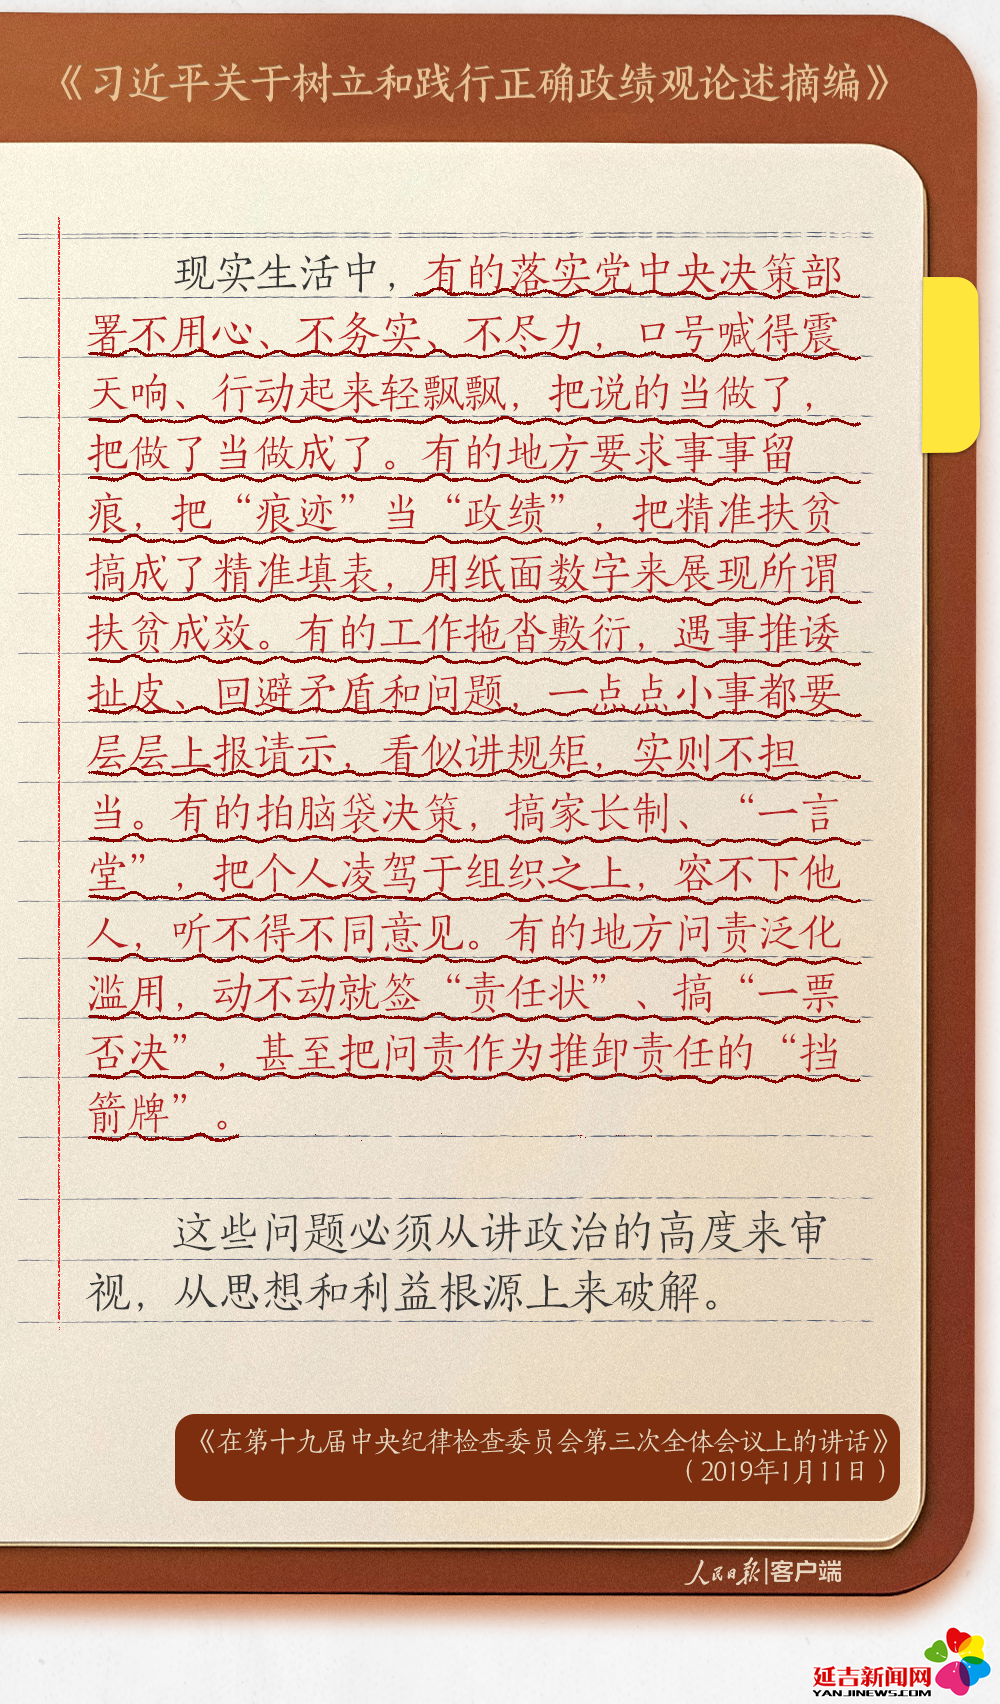 《习近平关于树立和践行正确政绩观论述摘编》
现实生活中，有的落实党中央决策部
署不用心、不务实、不尽力，口号喊得震
天响、行动起来轻飘飘，把说的当做了，
把做了当做成了。有的地方要求事事留
痕，把“痕迹”当“政绩”，把精准扶贫
搞成了精准填表，用纸面数字来展现所谓
扶贫成效。有的工作拖沓敷衍，遇事推诿
扯皮、回避矛盾和问题，一点点小事都要
层层上报请示，看似讲规矩，实则不担
当。有的拍脑袋决策，搞家长制、“一言
堂”，把个人凌驾于组织之上，容不下他
人，听不得不同意见。有的地方问责泛化
滥用，动不动就签“责任状”、搞“一票
否决”，甚至把问责作为推卸责任的“挡
箭牌”。
这些问题必须从讲政治的高度来审
视，从思想和利益根源上来破解。
《在第十九届中央纪律检查委员会第三次全体会议上的讲话》
（2019年1月11日）
人民日报|客户端
延吉新闻网
YANJINEWS.COM